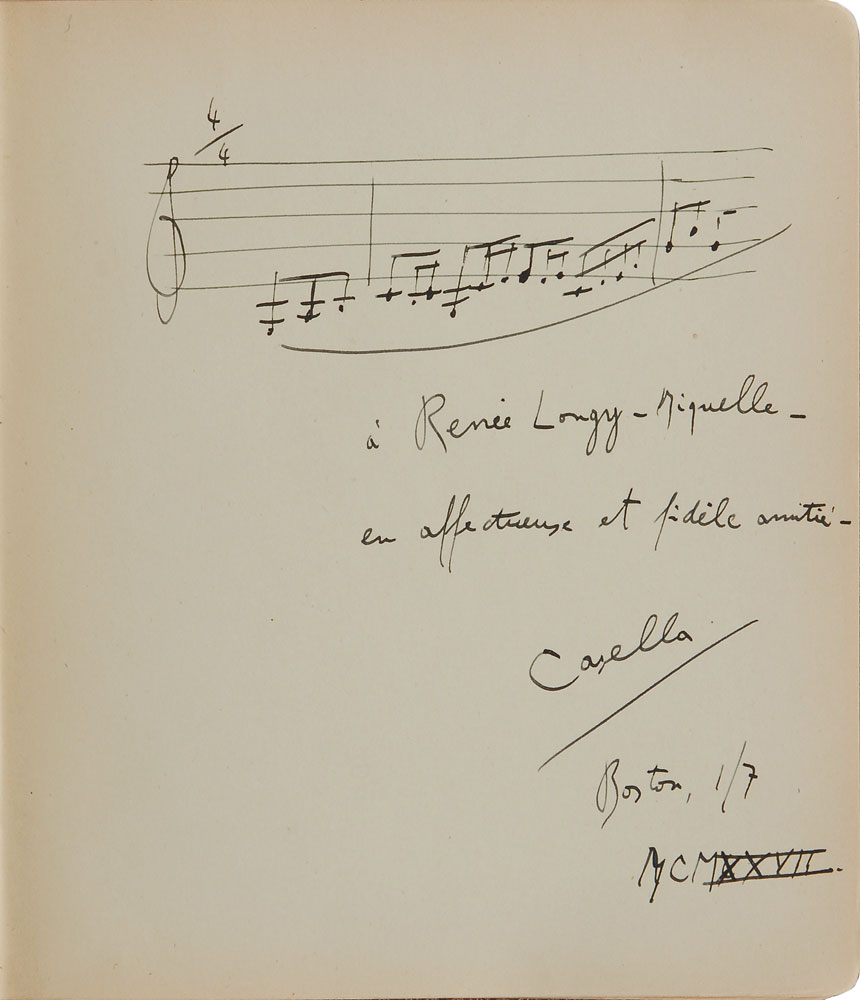 4/4
à Renée Longy-Miquelle-
en affectueuse et fidèle amitié-
Casella
Boston, 1/7
MCMXXVII.